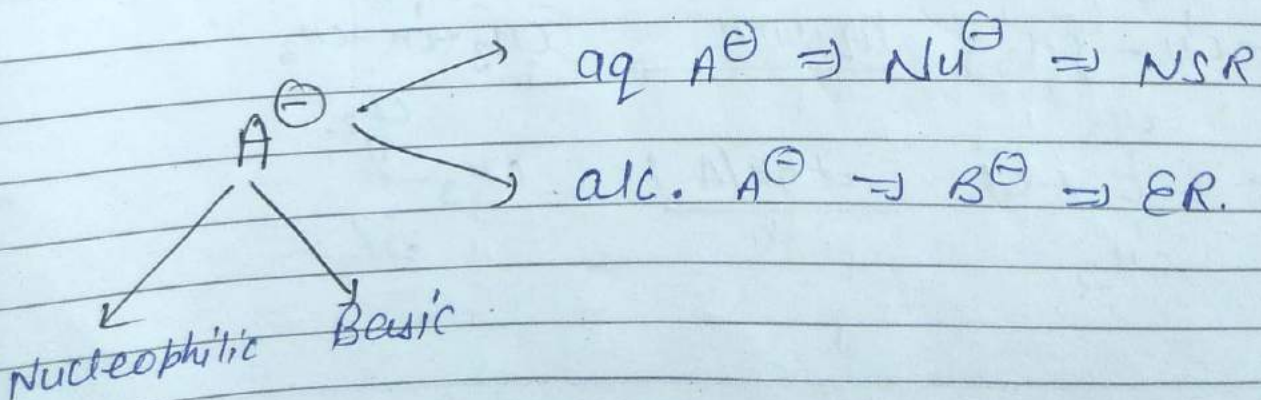 aq A⊖ ⇒ Nu⊖ ⇒ NSR
A⊖
alc. A⊖ ⇒ B⊖ ⇒ ER.
Nucleophilic Basic